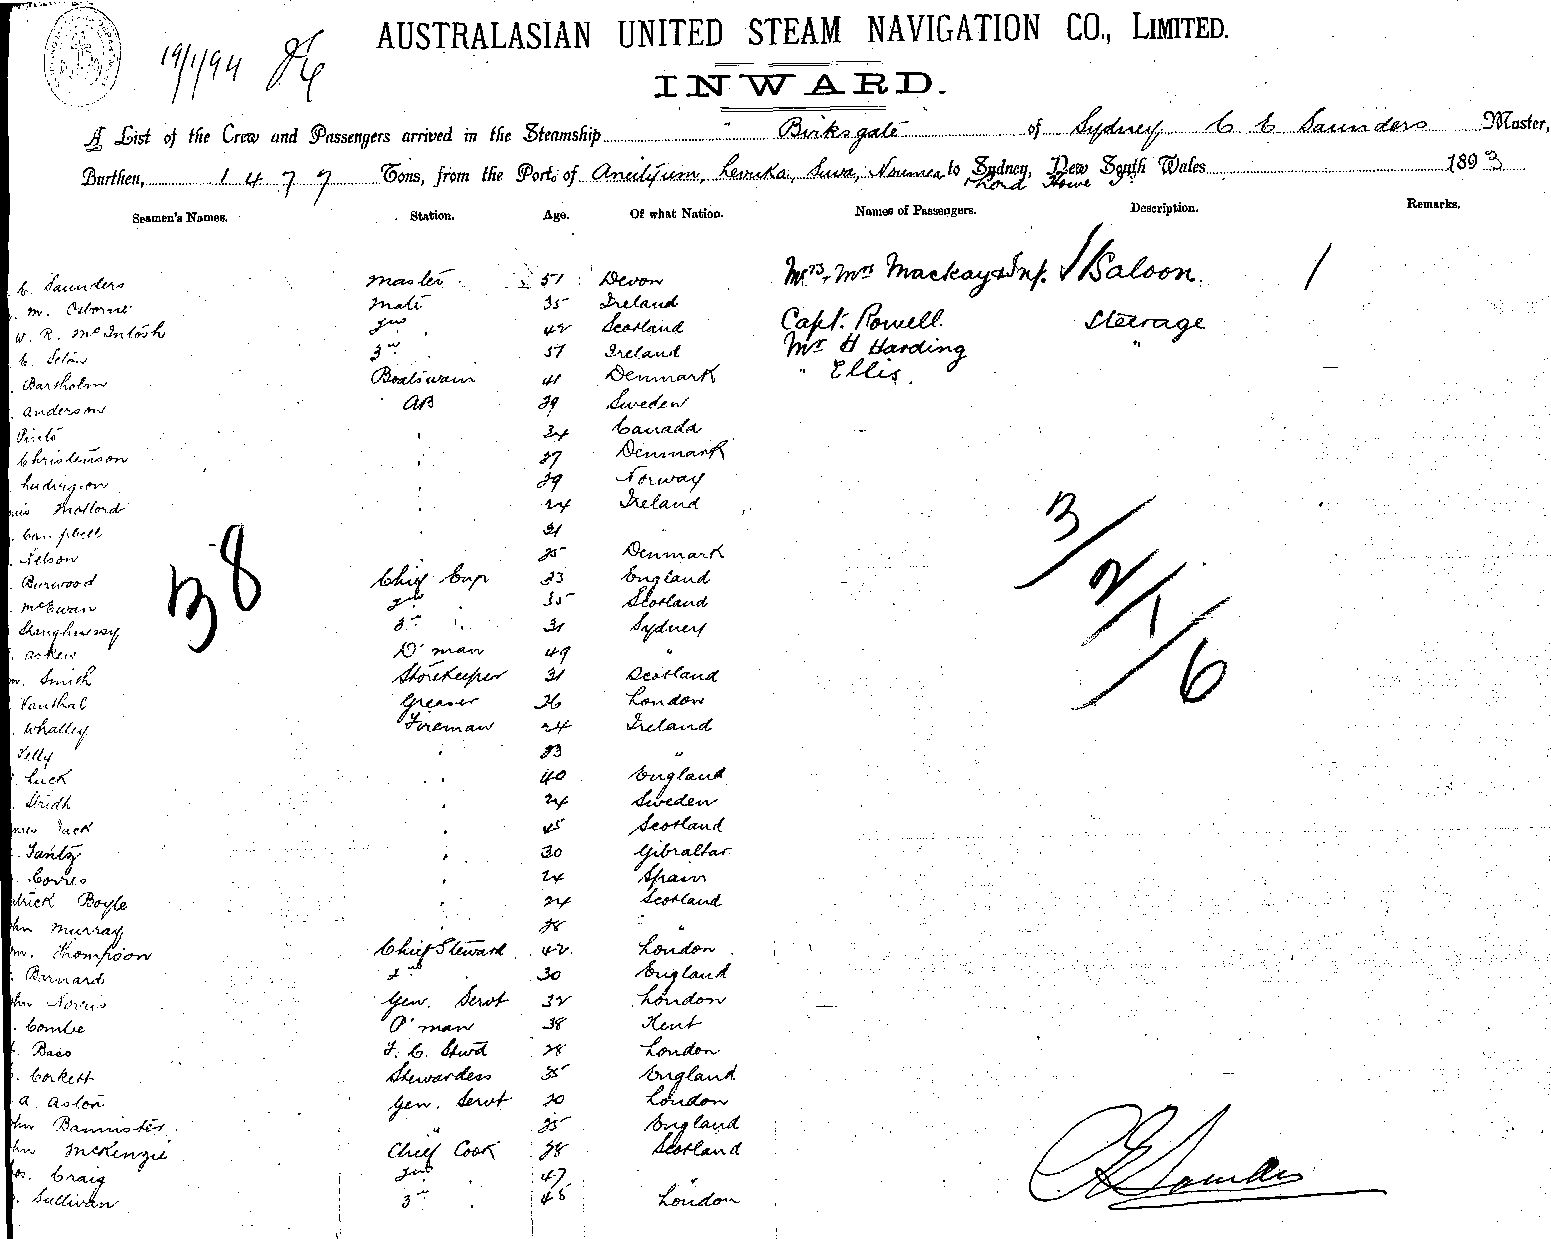 19/1/94
AUSTRALASIAN UNITED STEAM NAVIGATION CO., LIMITED.
INWARD.
A List of the Crew and Passengers arrived in the Steamship " Birksgate of Sydney C C Saunders Master,
Burthen, 1479 Tons, from the Port of Aneityum, Levuka, Suva, Noumea to Sydney, New South Wales 1893
& Lord Howe I.
Seamen's Names. Station. Age. Of what Nation. Names of Passengers. Description. Remarks.
C. Saunders Master 51 Devon Mr & Mrs Mackay & Inf. Saloon 1
M. Osborne Mate 35 Ireland
W. R. McIntosh 2nd " 42 Scotland Capt. Rowell. Steerage
C. 3rd " 51 Ireland Mr H Harding "
Bartholm Boatswain 41 Denmark " Ellis.
Anderson AB 29 Sweden
Pinto " 34 Canada
Christenson " 27 Denmark
" 29 Norway
" 24 Ireland
Campbell " 21
Nelson 25 Denmark
Burwood Chief Engr 33 England
McEwan 2nd " 35 Scotland
Shaughnessy 3rd " 31 Sydney
Askew D'man 49 "
m. Smith Storekeeper 31 Scotland
Greaser 26 London
Whalley Fireman 24 Ireland
Kelly " 23 "
Luck " 40 England
Stridh " 24 Sweden
mes Jack " 45 Scotland
" 30 Gibraltar
" 24 Spain
trick Boyle " 24 Scotland
hn Murray " 28 "
m. Thompson Chief Steward 42 London
Barnard 2nd " 30 England
hn Norris Gen. Servt 32 London
Combe P'man 38 Kent
Bass F. C. Stwd 28 London
Corkett Stewardess 35 England
A. Aston Gen. Servt 20 London
hn Bannister " 25 England
hn McKenzie Chief Cook 28 Scotland
os. Craig 2nd " 47 "
Sullivan 3rd " 45 London
38
3/2/1/6
C C Saunders